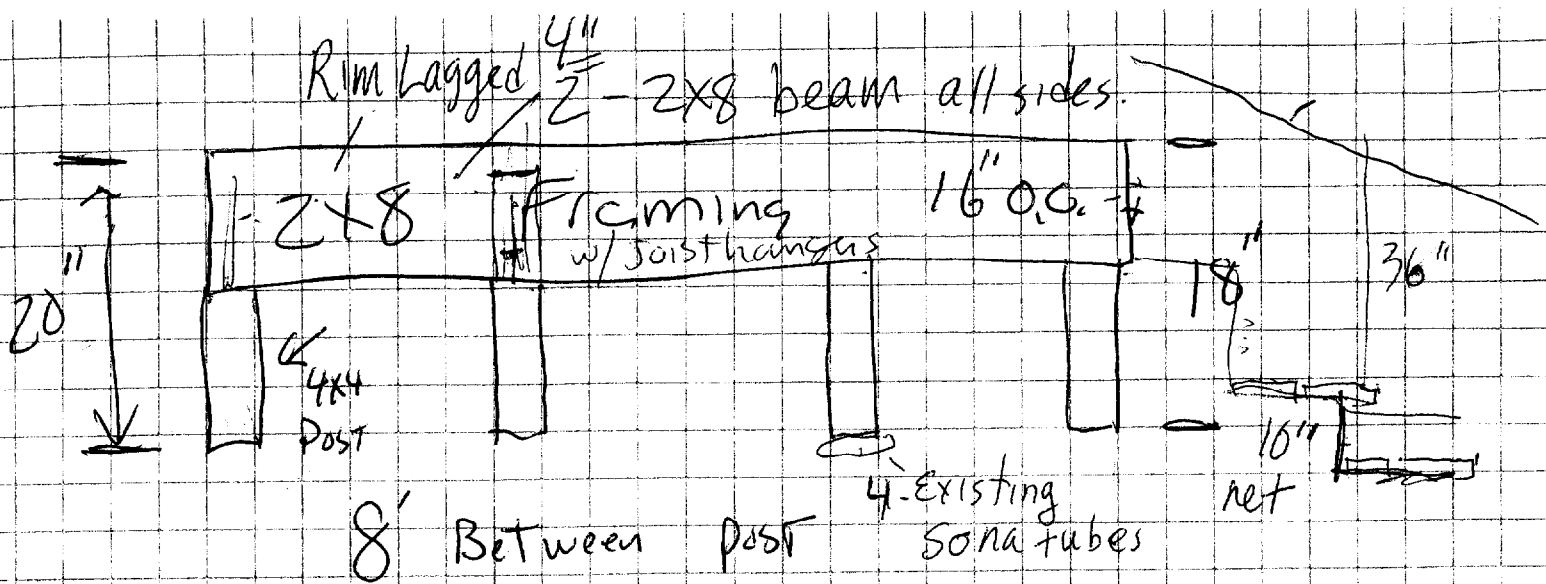 Rim Lagged 4"
2 - 2x8 beam all sides.
2x8 Framing 16" O.C.
w/ Joist hangers
20"
18"
36"
4x4
Post
10"
net
4 - Existing
Sona tubes
8' Between post